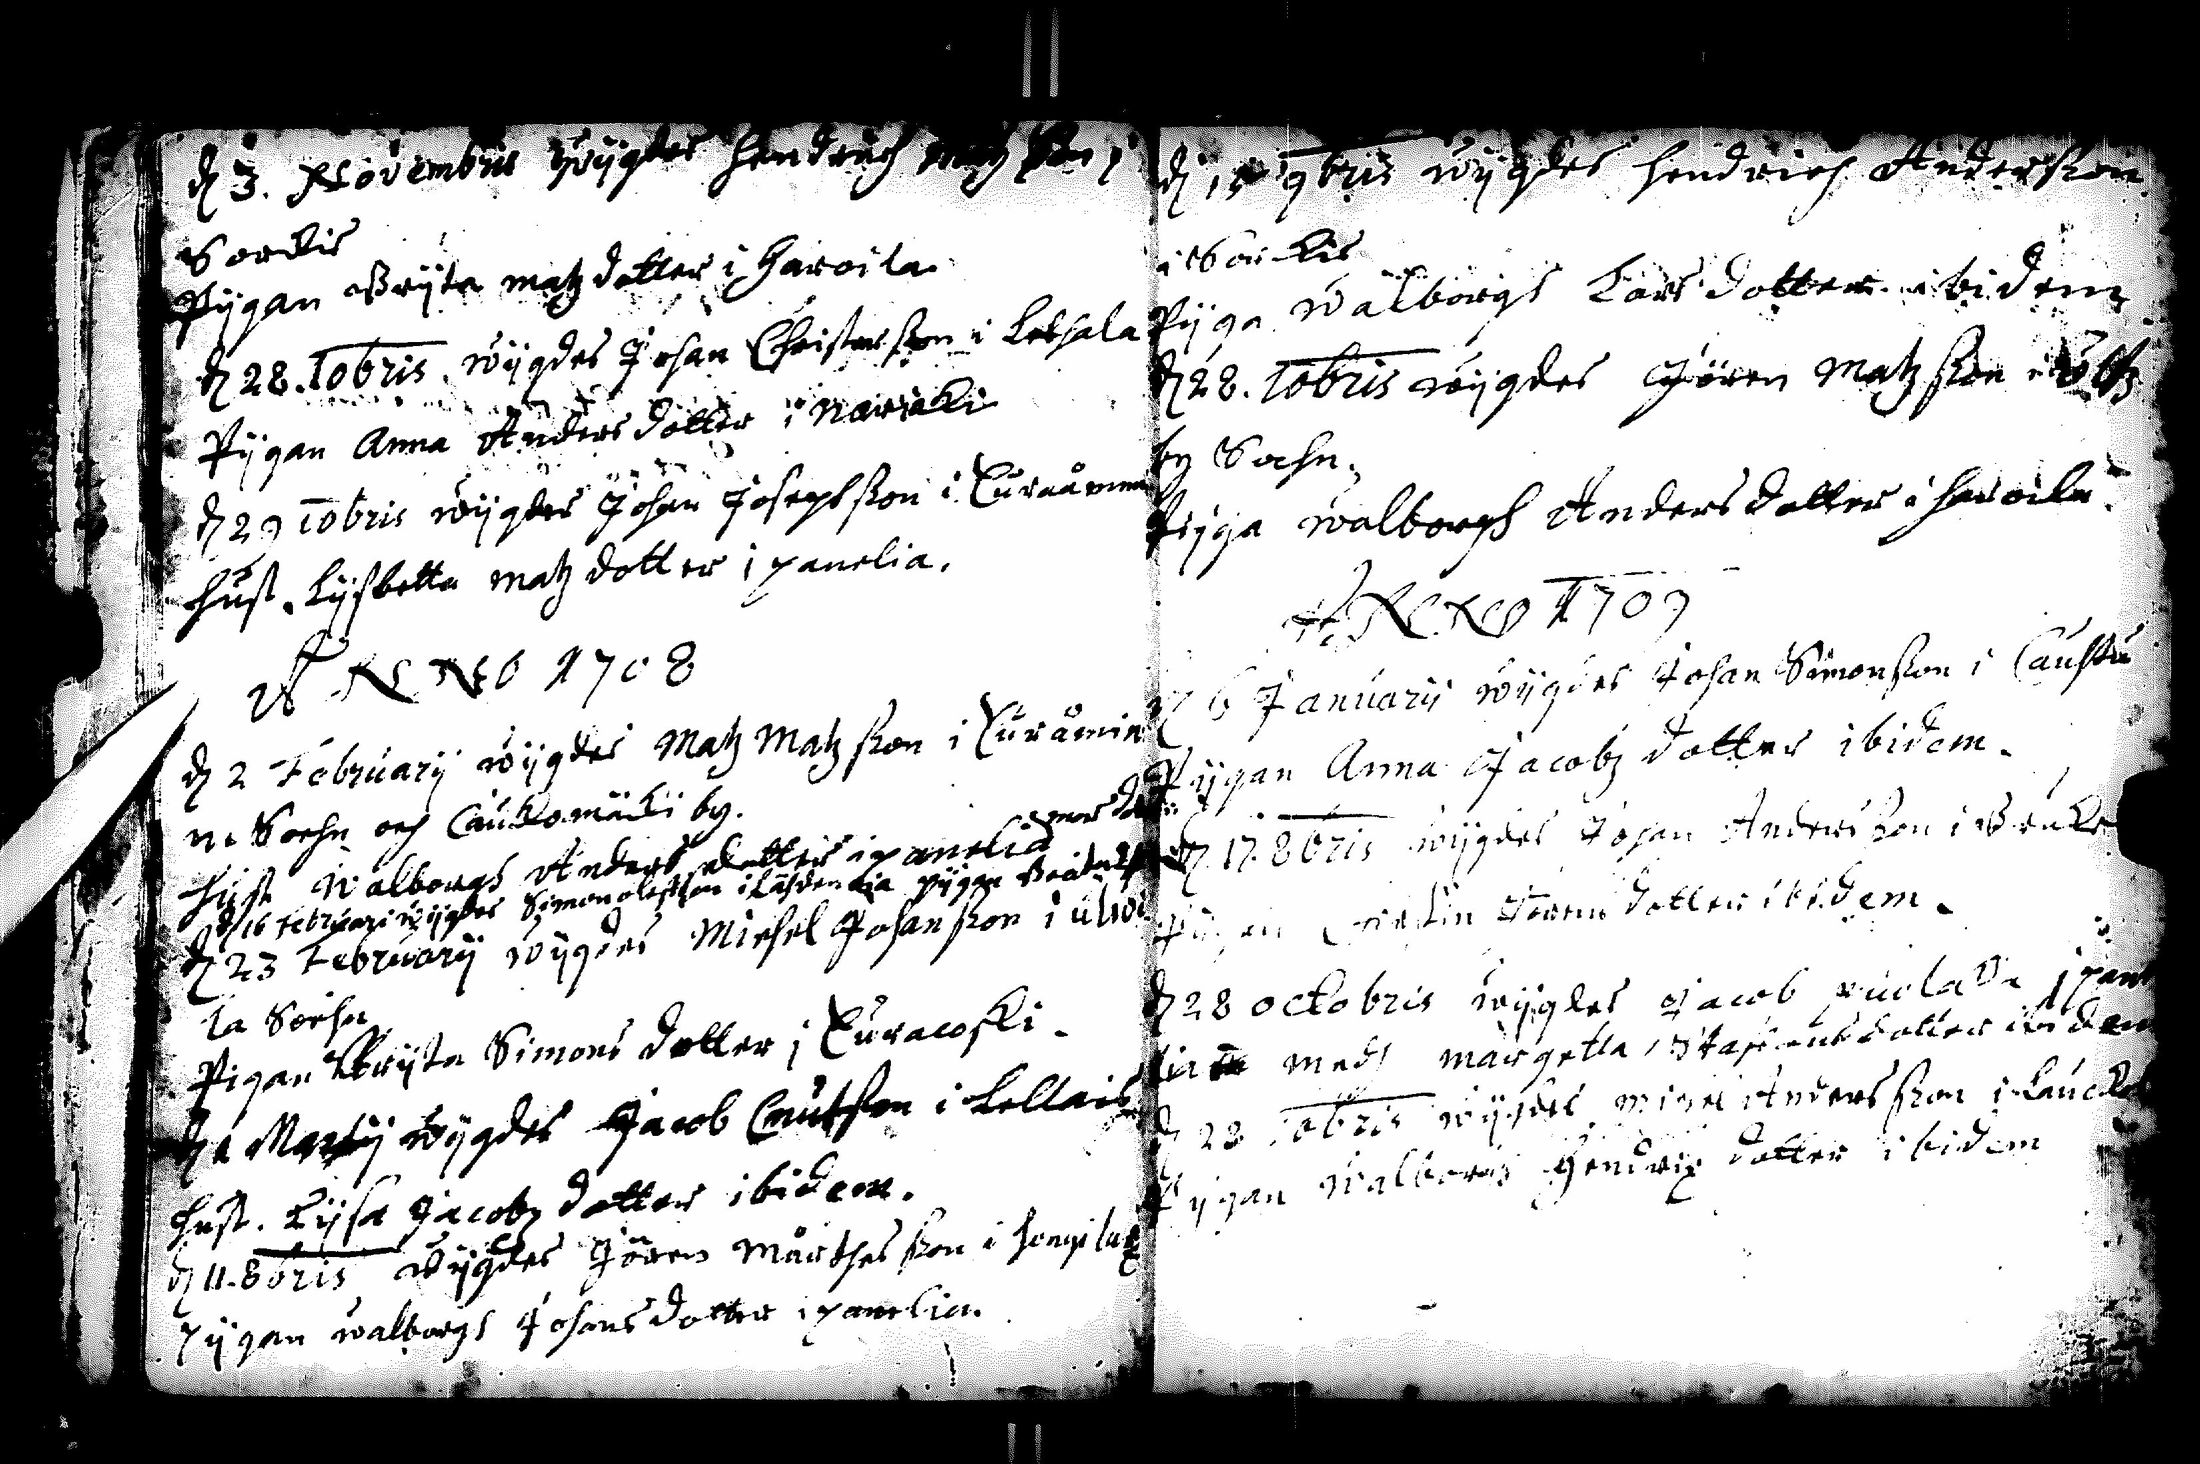 d 3. Novembris wijgdes Hendrich Matz son i
Sorkis
Pygan Brijta Matz dotter i Haroila
d 28. 10bris. wijgdes Johan Christersson i Lethala
Pijgan Anna Anders dotter i Naríaki
d 29 10bris wijgdes Johan Josephsson i Euraåmin
Hust. Lijsbetta Matz dotter i panelia.
ANNO 1708
d 2 Februarij wijgdes Matz Matzson i Euraåmin
ne Sochn och Caukomäki by.
Hust Walborgh Anders dotter i panelia
d 16 februari wijgdes Simon olofsson i Pygan
d 23 Februarij wijgdes Michel Johansson i Ulwi
la Sochn
Pigan Brijta Simons dotter i Euracoski.
d Martij wijgdes Jacob Cnutson i Lellais
Hust. Lijsa Jacobz dotter ibidem.
d 11. 8bris wijgdes Jören Mårthesson i
Pijgan walborgh Johans dotter i panelia.
d 15 9bris wijgdes Hendrich Andersson
i Sorkis
Pijga Walborgh Lars dotter ibidem
d 28. 10bris wijgdes Jören Matzson i
by Sochn.
Pijga Walborgh Anders dotter i Haroila.
ANNO 1709
d 6 Januarij wijgdes Johan Simonsson i Cauttu
Pijgan Anna Jacobz dotter ibidem.
d. 17. 8bris wijgdes Johan Andersson i
Pijgan Jörens dotter ibidem.
d 28 octobris wijgdes Jacob i pane
lia medh margetta Staffans dotter ibidem
d 28 10bris wijgdes Michel Andersson i
Pijgan Walborgh Hendrix dotter ibidem